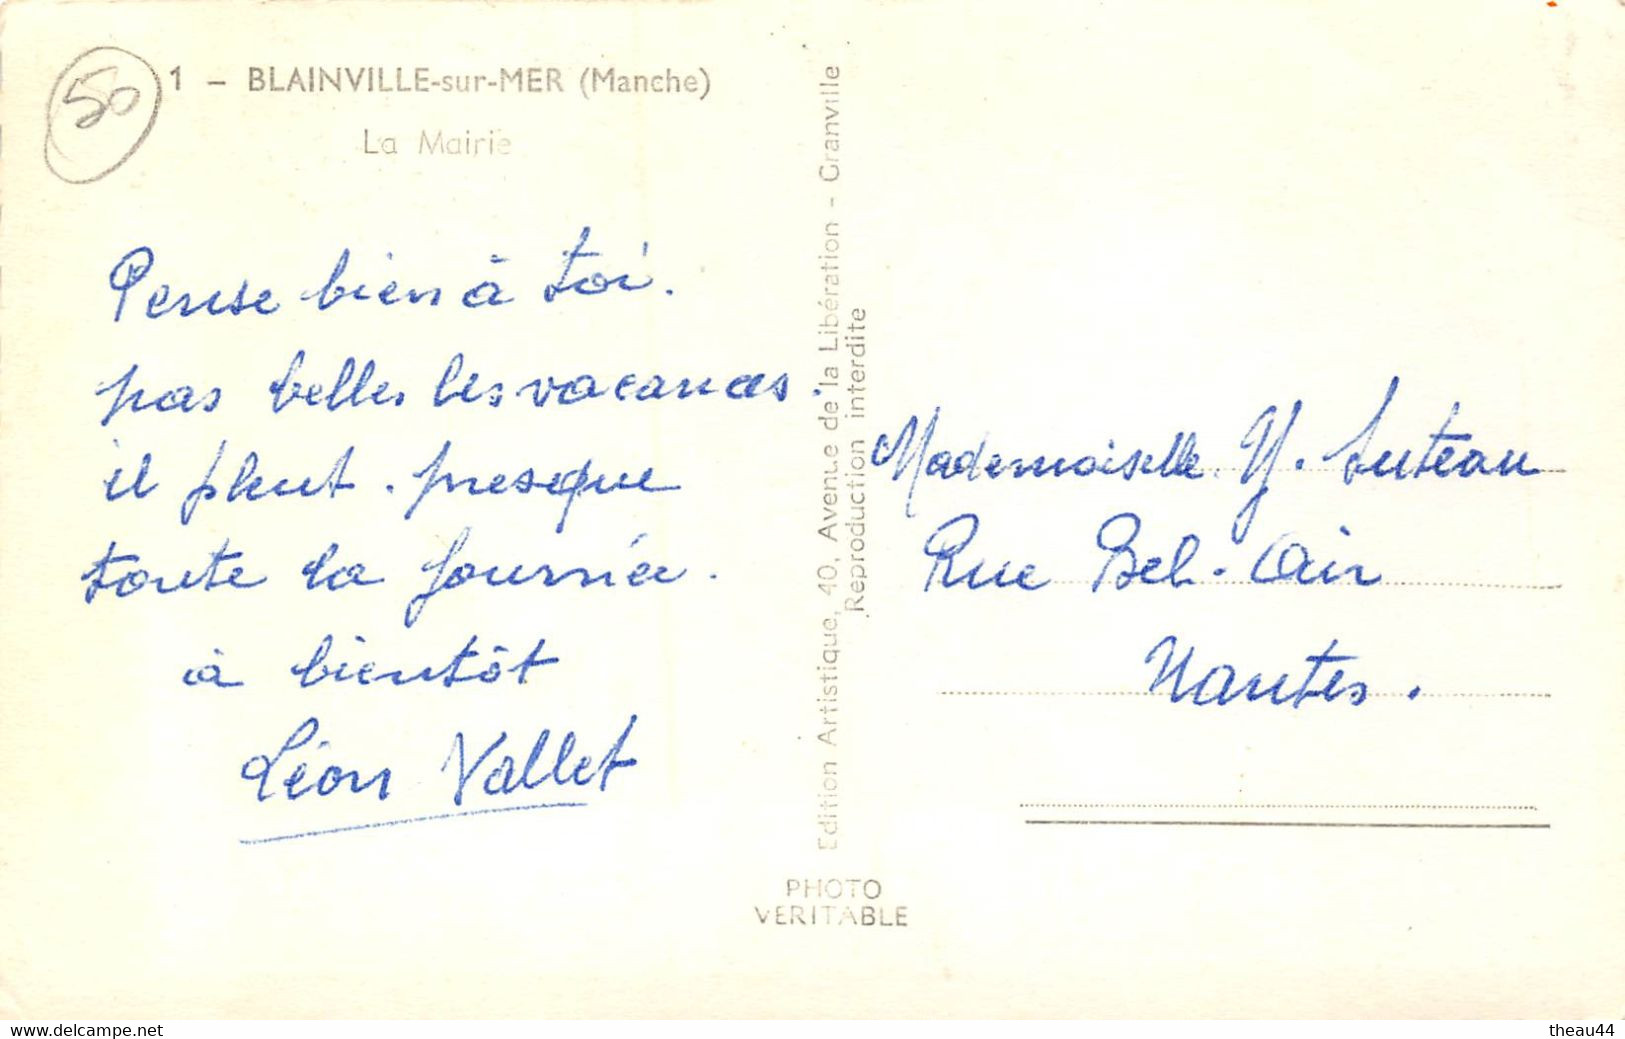 50
1 – BLAINVILLE-sur-MER (Manche)
La Mairie
Pense bien à toi.
pas belles les vacances.
il pleut. presque
toute la journée.
à bientôt
Léon Vallet
Edition Artistique, 40, Avenue de la Libération - Granville
Reproduction interdite
PHOTO
VERITABLE
Mademoiselle Y. Luteau
Rue Bel-Air
Nantes.
www.delcampe.net
theau44